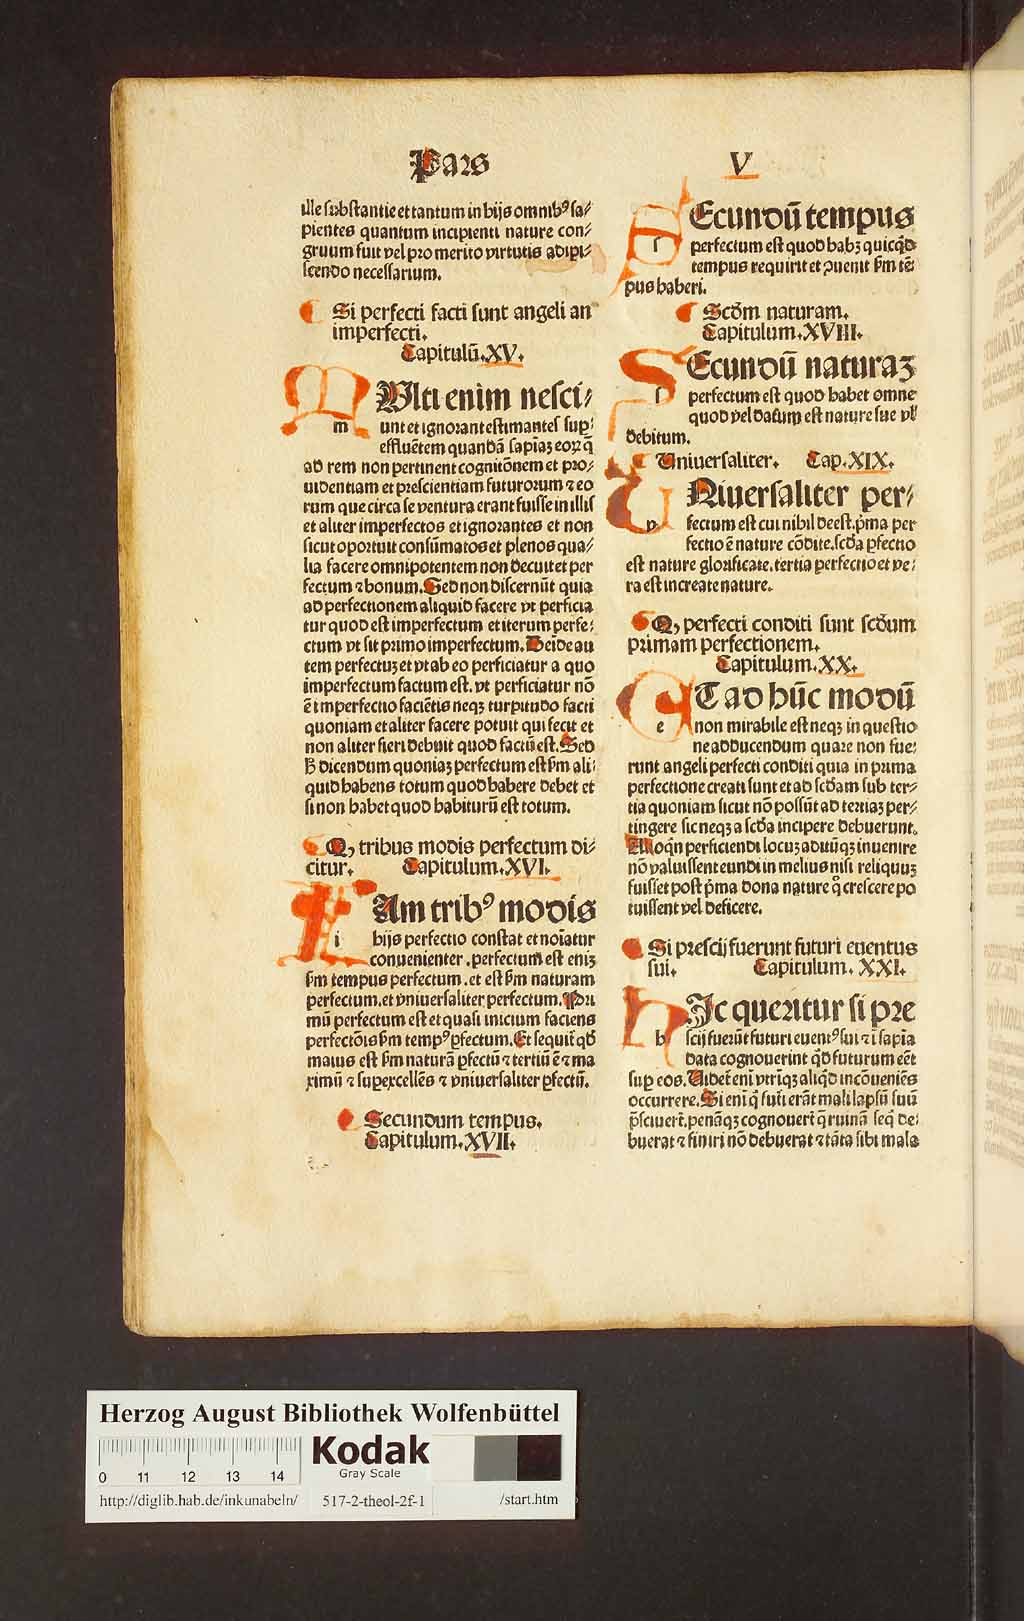 Pars
V
ille substantie et tantum in hijs omnibꝰ sa/
pientes quantum incipienti nature con/
gruum fuit vel pro merito virtutis adipi/
scendo necessarium.
Si perfecti facti sunt angeli an
imperfecti.
Capitulū.XV.
MUlti enim nesci/
m unt et ignorant estimantes sup̱
effluētem quandā sapiāꝫ eoꝝ q̄
ad rem non pertinent cognitōnem et pro/
uidentiam et prescientiam futurorum ⁊ eo
rum que circa se ventura erant fuisse in illis
et aliter imperfectos et ignorantes et non
sicut oportuit consūmatos et plenos qua/
lia facere omnipotentem non decuit et per
fectum ⁊ bonum. Sed non discernūt quia
ad perfectionem aliquid facere vt perficia
tur quod est imperfectum et iterum perfe/
ctum vt sit primo imperfectum. Deīde au
tem perfectuꝫ et vt ab eo perficiatur a quo
imperfectum factum est. vt perficiatur nō
ē īmperfectio faciētis neqꝫ turpitudo facti
quoniam et aliter facere potuit qui fecit et
non aliter fieri debuit quod factū est. Sed
h̄ dicendum quoniaꝫ perfectum est ẜm ali/
quid habens totum quod habere debet et
si non habet quod habiturū est totum.
Qꝫ tribus modis perfectum di/
citur. Capitulum.XVI.
IAm tribꝰ modis
i hijs perfectio constat et noīatur
conuenienter. perfectum est eniꝫ
ẜm tempus perfectum. et est ẜm naturam
perfectum. et vniuersaliter perfectum. Pri
mū perfectum est et quasi inicium faciens
perfectōis ẜm tempꝰ ꝑfectum. Et sequit̄ qd̄
maius est ẜm naturā ꝑfectū ⁊ tertiū ē ⁊ ma
ximū ⁊ suꝑexcellēs ⁊ vniuersaliter ꝑfectū.
Secundum tempus.
Capitulum.XVII.
SEcundū tempus
s perfectum est quod habꝫ quicqd̄
tempus requirit et ꝯuenit ẜm tē/
pus haberi.
Scdm̄ naturam.
Capitulum.XVIII.
SEcundū naturaꝫ
s perfectum est quod habet omne
quod vel datum est nature sue vl̓
debitum.
Uniuersaliter. Cap.XIX.
UNiuersaliter per/
v fectum est cui nihil deest. p̄ma per
fectio ē nature cōdite. scd̄a ꝑfectio
est nature glorificate. tertia perfectio et ve/
ra est increate nature.
Qꝫ perfecti conditi sunt scd̄um
primam perfectionem.
Capitulum.XX.
ET ad hūc modū
e non mirabile est neqꝫ in questio
ne adducendum quare non fue/
runt angeli perfecti conditi quia in prima
perfectione creati sunt et ad scd̄am sub ter/
tia quoniam sicut nō possūt ad tertiaꝫ per/
tingere sic neqꝫ a scd̄a incipere debuerunt.
Alioqn̄ perficiendi locuꝫ aduūqꝫ inuenire
nō valuissent eundi in melius nisi reliquuꝫ
fuisset post p̄ma bona nature q̄ crescere po
tuissent vel deficere.
Si prescij fuerunt futuri euentus
sui. Capitulum. XXI.
HIc queritur si pre
h scij fuerūt futuri euentꝰ sui ⁊ ī sapīa
data cognouerint qd̄ futurum eēt
sup̱ eos. Uidet̄ enī vtrūqꝫ aliqd̄ incōueniēs
occurrere. Si enī q̄ futi erāt mali lapsū suū
p̄sciuerт̄. penāqꝫ cognouerт̄ q̄ ruinā seq̄ de/
buerat ⁊ finiri nō debuerat ⁊ tāta sibi mala
Herzog August Bibliothek Wolfenbüttel
0 11 12 13 14
Kodak
Gray Scale
http://diglib.hab.de/inkunabeln/ 517-2-theol-2f-1 /start.htm